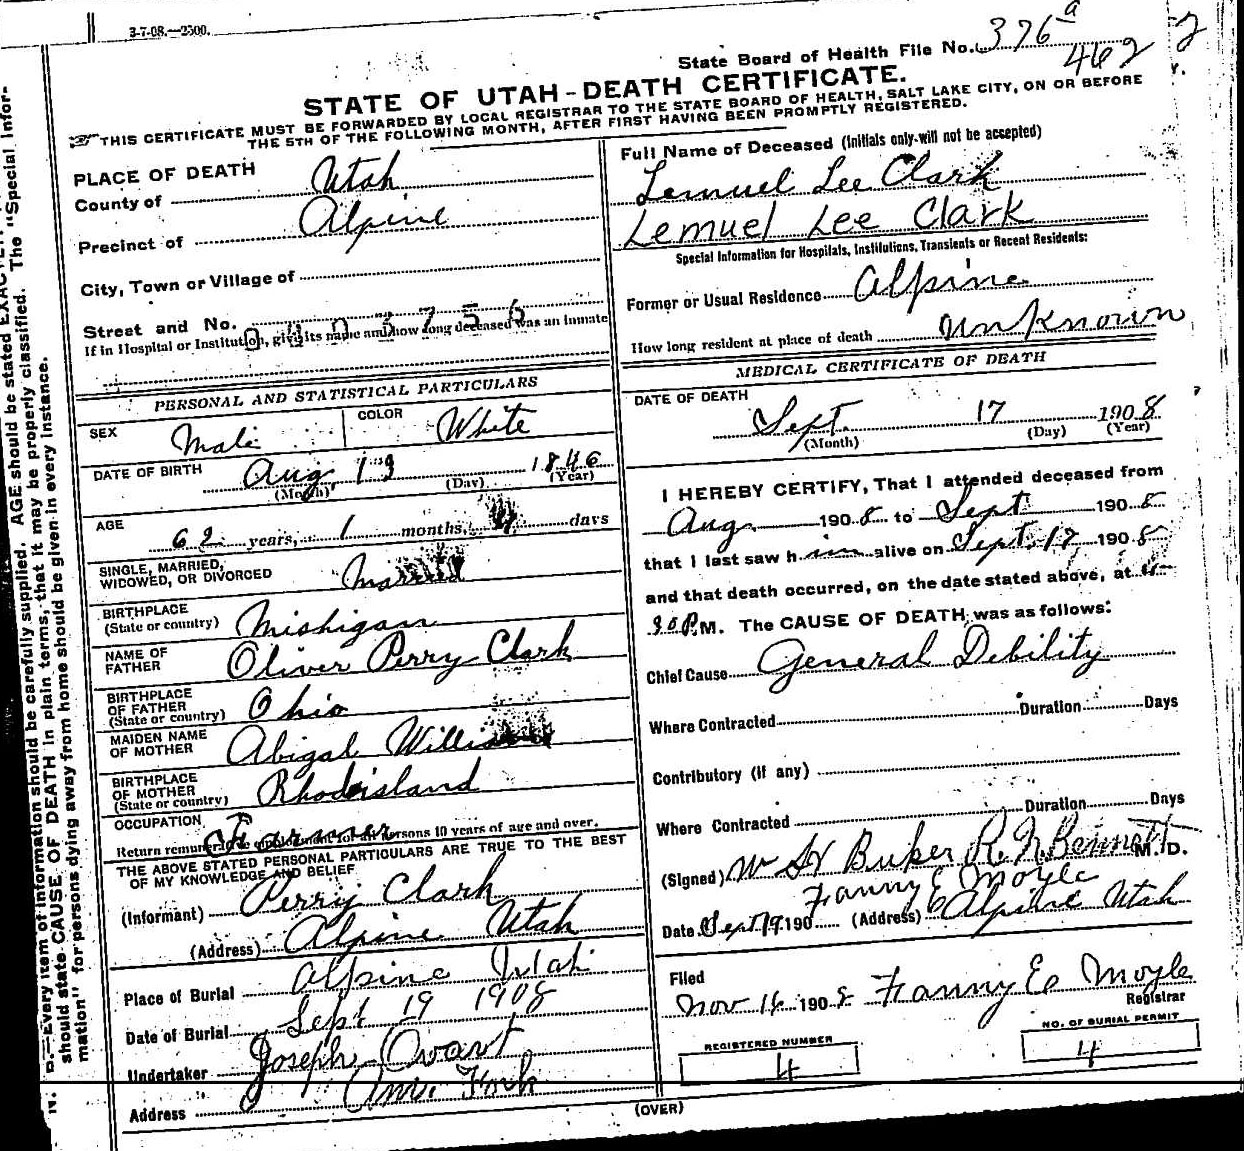 3-7-08.—2500.
State Board of Health File No. 376 a
462
STATE OF UTAH - DEATH CERTIFICATE.
THIS CERTIFICATE MUST BE FORWARDED BY LOCAL REGISTRAR TO THE STATE BOARD OF HEALTH, SALT LAKE CITY, ON OR BEFORE
THE 5TH OF THE FOLLOWING MONTH, AFTER FIRST HAVING BEEN PROMPTLY REGISTERED.
PLACE OF DEATH
County of Utah
Precinct of Alpine
City, Town or Village of
Street and No.
If in Hospital or Institution, give its name and how long deceased was an inmate
PERSONAL AND STATISTICAL PARTICULARS
SEX Male COLOR White
DATE OF BIRTH Aug 13 1846
(Month) (Day) (Year)
AGE 62 years, 1 months, 4 days
SINGLE, MARRIED,
WIDOWED, OR DIVORCED Married
BIRTHPLACE
(State or country) Mishigan
NAME OF
FATHER Oliver Perry Clark
BIRTHPLACE
OF FATHER
(State or country) Ohio
MAIDEN NAME
OF MOTHER Abigal
BIRTHPLACE
OF MOTHER
(State or country) Rhodeisland
OCCUPATION Farmer
Return remunerative employment for all persons 10 years of age and over.
THE ABOVE STATED PERSONAL PARTICULARS ARE TRUE TO THE BEST
OF MY KNOWLEDGE AND BELIEF
(Informant) Perry Clark
(Address) Alpine Utah
Place of Burial Alpine Utah
Date of Burial Sept 19 1908
Undertaker Joseph
Address Am. Fork
Full Name of Deceased (Initials only-will not be accepted)
Lemuel Lee Clark
Lemuel Lee Clark
Special Information for Hospitals, Institutions, Transients or Recent Residents:
Former or Usual Residence Alpine
How long resident at place of death UnKnown
MEDICAL CERTIFICATE OF DEATH
DATE OF DEATH
Sept. 17 1908
(Month) (Day) (Year)
I HEREBY CERTIFY, That I attended deceased from
Aug 1908 to Sept 1908
that I last saw h im alive on Sept. 17 1908
and that death occurred, on the date stated above, at
30 P.M. The CAUSE OF DEATH was as follows:
Chief Cause General Debility
Where Contracted Duration Days
Contributory (if any)
Duration Days
Where Contracted
(Signed) R. N. Bennett M. D.
Fanny E Moyle
Date Sept 19 190 (Address) Alpine Utah
Filed
Nov 16 1908 Fanny E Moyle
Registrar
REGISTERED NUMBER
4
NO. OF BURIAL PERMIT
4
(OVER)
N. B.—Every item of information should be carefully supplied. AGE should be stated
should state CAUSE OF DEATH in plain terms, that it may be properly classified. The "Special Infor-
mation" for persons dying away from home should be given in every instance.